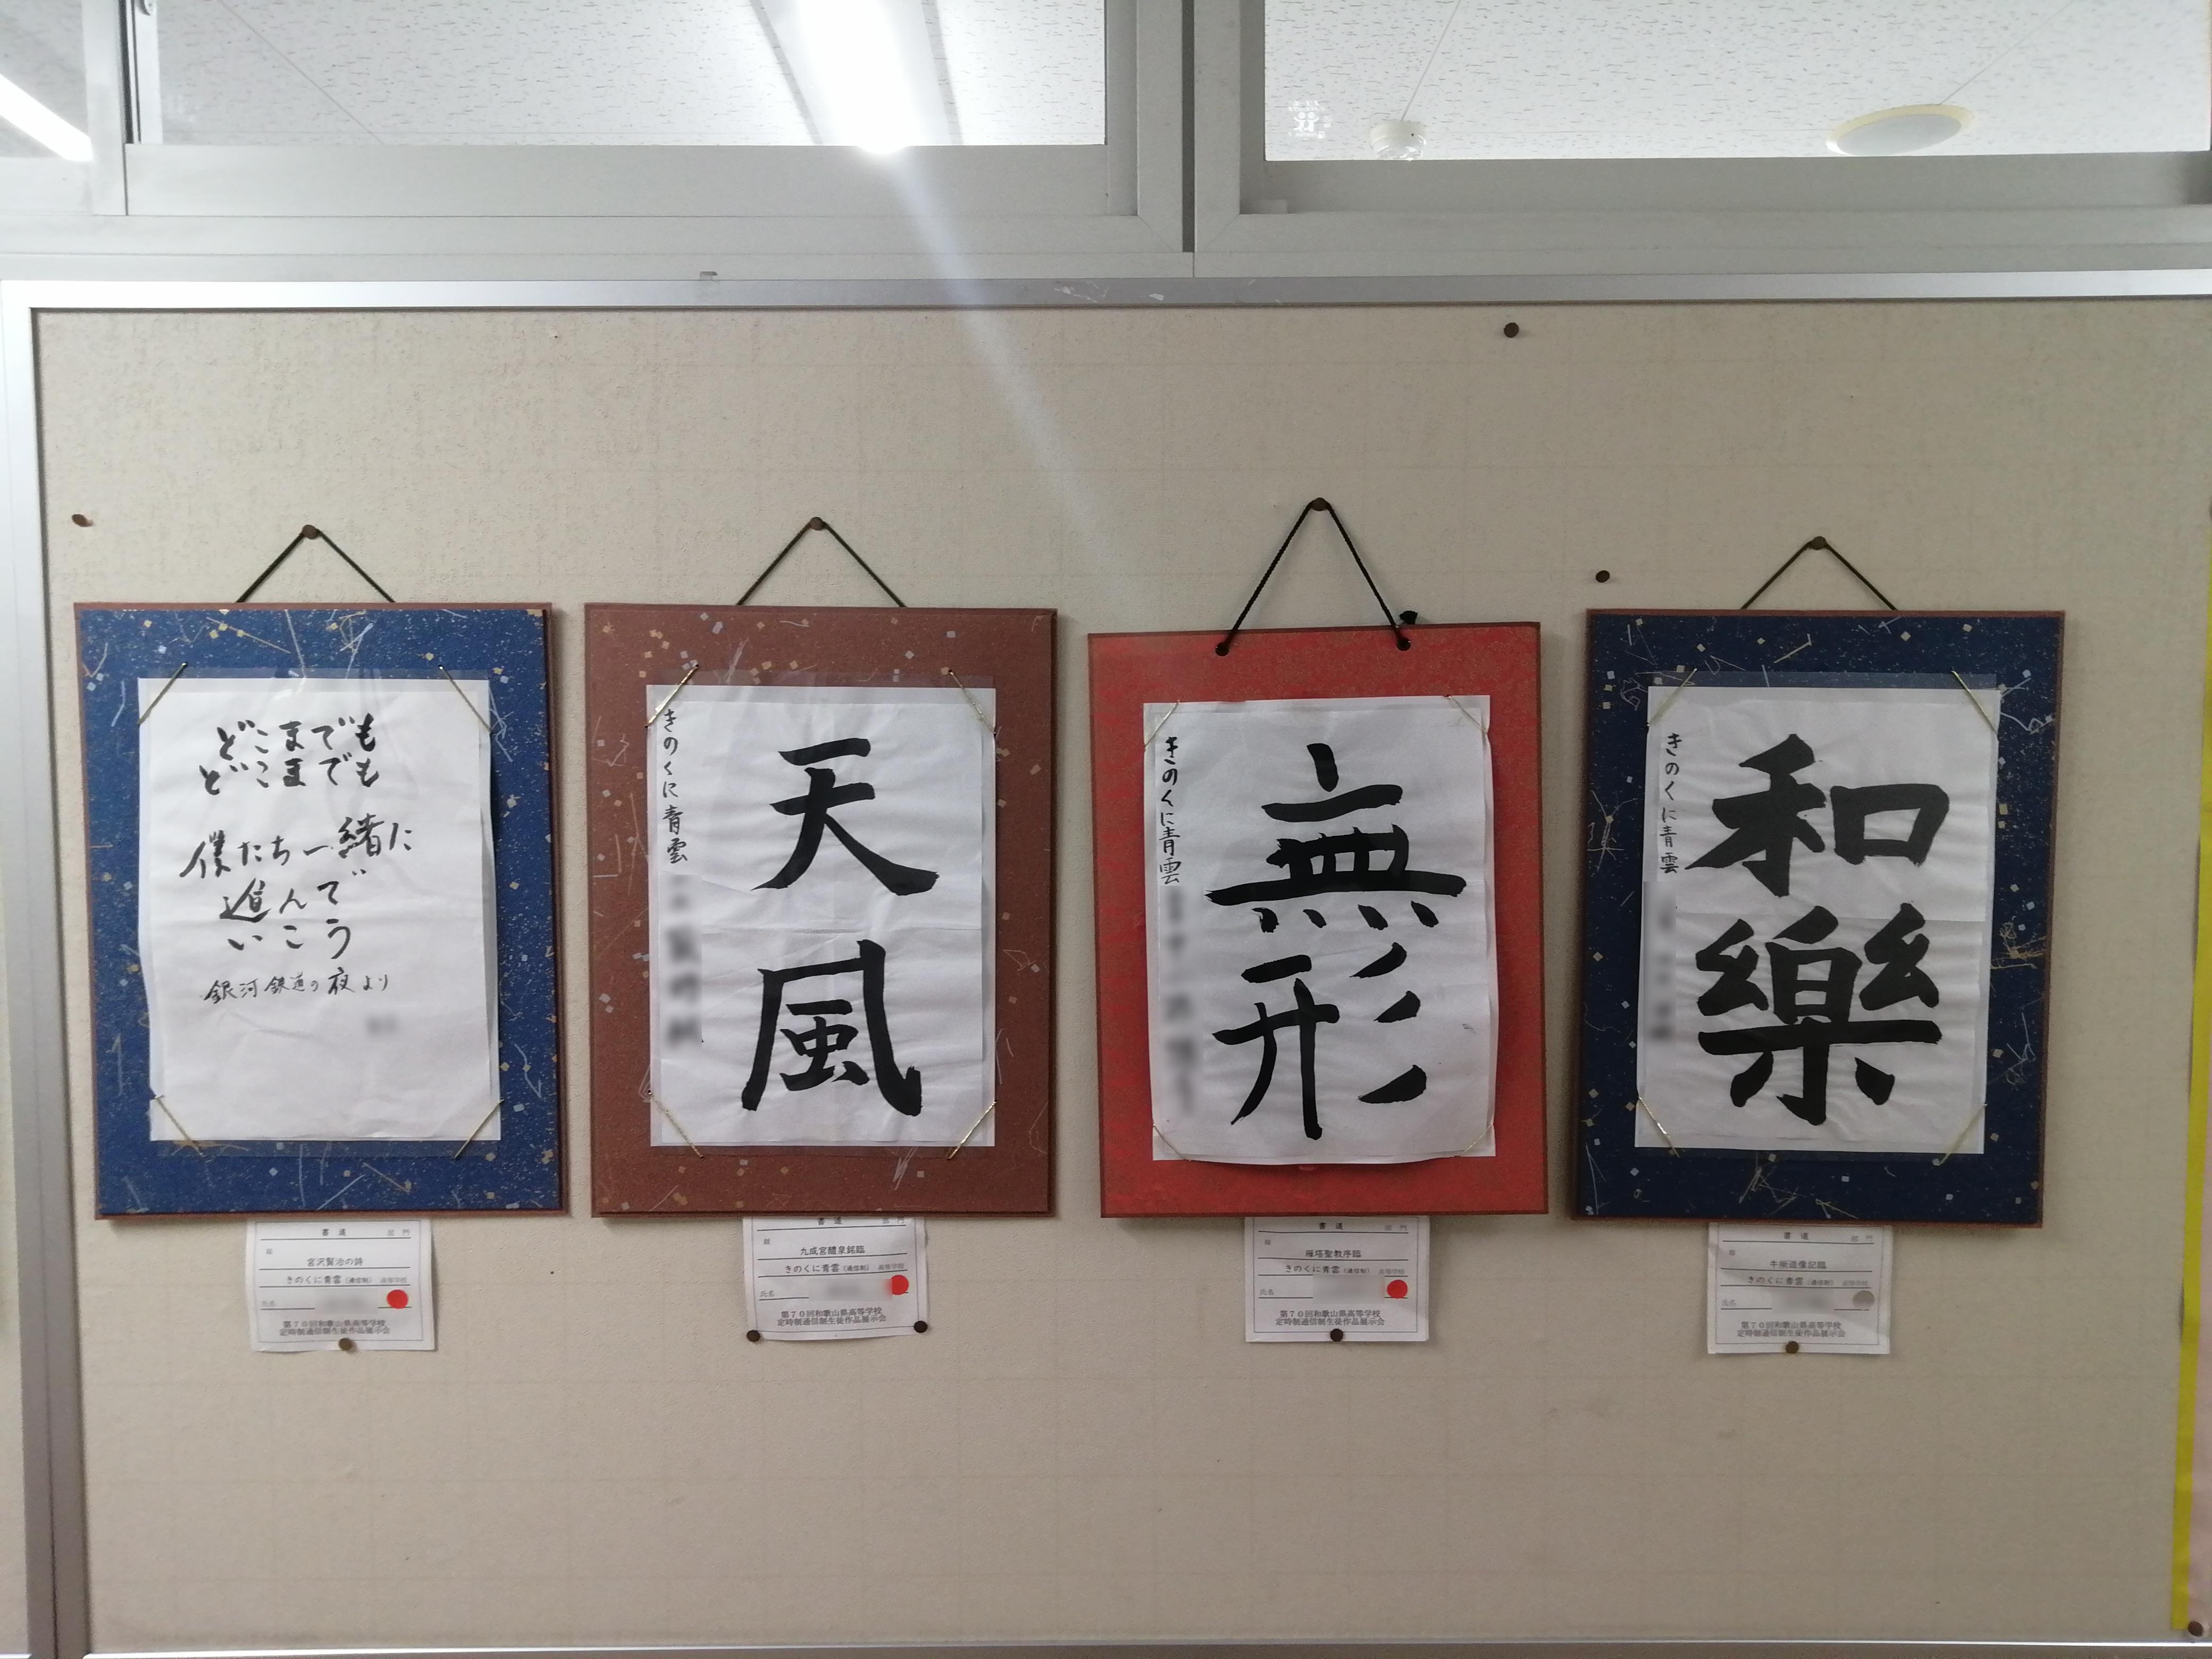 どこまでも
どこまでも
僕たち一緒に
進んで
いこう
銀河鉄道の夜より
書道 部門
題
宮沢賢治の詩
きのくに青雲（通信制） 高等学校
氏名
第７０回和歌山県高等学校
定時制通信制生徒作品展示会
天風
きのくに青雲
書道 部門
題
九成宮醴泉銘臨
きのくに青雲（通信制） 高等学校
氏名
第７０回和歌山県高等学校
定時制通信制生徒作品展示会
無形
きのくに青雲
書道 部門
題
雁塔聖教序臨
きのくに青雲（通信制） 高等学校
氏名
第７０回和歌山県高等学校
定時制通信制生徒作品展示会
和樂
きのくに青雲
書道 部門
題
牛橛造像記臨
きのくに青雲（通信制） 高等学校
氏名
第７０回和歌山県高等学校
定時制通信制生徒作品展示会